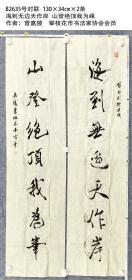 B2635号对联 130×34cm×2条
海到无边天作岸 山登绝顶我为峰
作者：曾嘉陵 攀枝花市书法家协会会员
海到無邊天作岸
山登絶頂我為峯